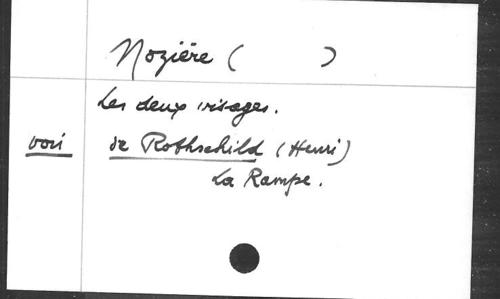 Nozière ( )
Les deux visages.
voir de Rothschild (Henri)
La Rampe.